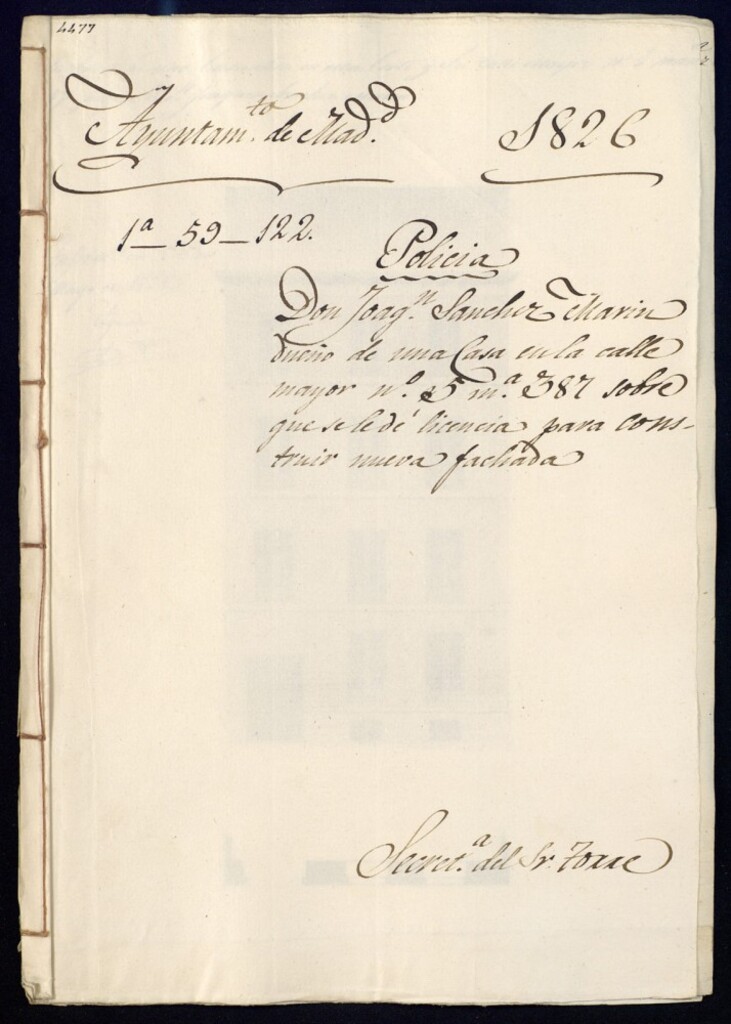 4477
Ayuntam.to de Mad.d 1826
1a_59_122.
Policia
Don Joaqn. Sanchez Marin
dueño de una Casa en la calle
mayor no. 5 ma. 387 sobre
que se le dé licencia para cons-
truir nueva fachada
Secret.a del Sr. Torre